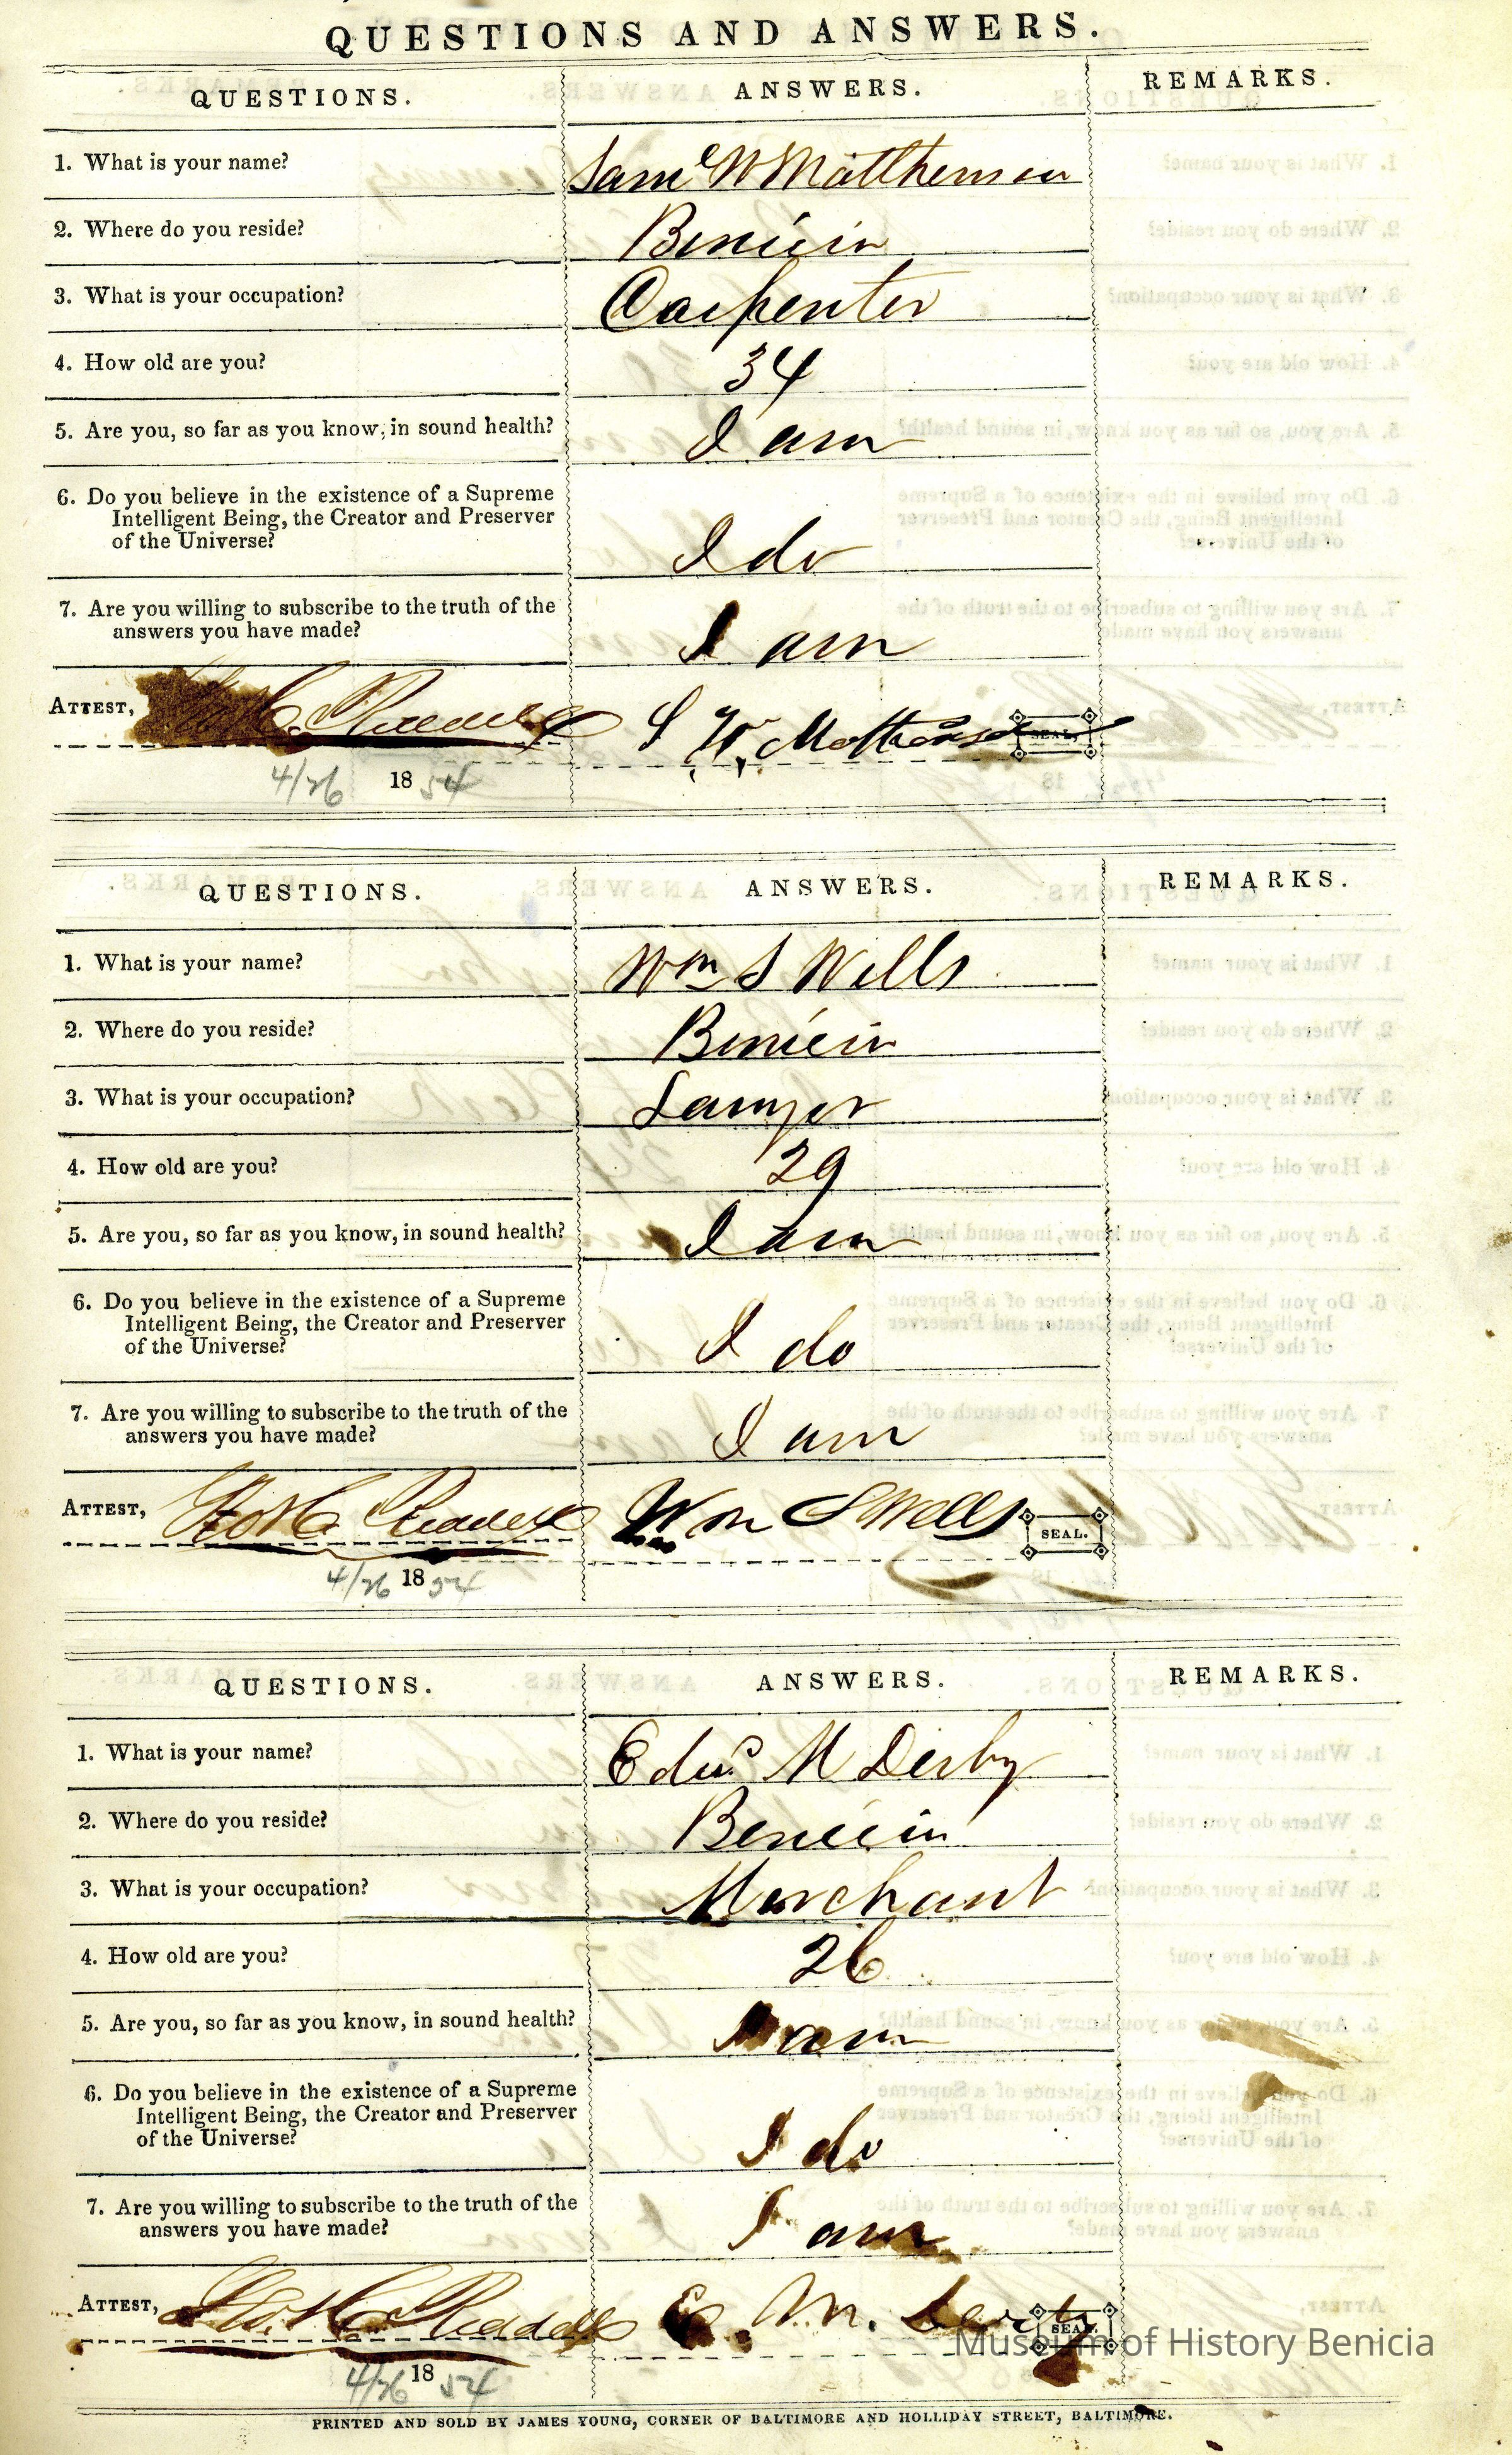 QUESTIONS AND ANSWERS.
QUESTIONS. ANSWERS. REMARKS.
1. What is your name? Saml W Matthewson
2. Where do you reside? Benicia
3. What is your occupation? Carpenter
4. How old are you? 34
5. Are you, so far as you know, in sound health? I am
6. Do you believe in the existence of a Supreme
Intelligent Being, the Creator and Preserver
of the Universe? I do
7. Are you willing to subscribe to the truth of the
answers you have made? I am
ATTEST, S W. SEAL.
4/26 1854
QUESTIONS. ANSWERS. REMARKS.
1. What is your name? Wm S Wells
2. Where do you reside? Benicia
3. What is your occupation? Lawyer
4. How old are you? 29
5. Are you, so far as you know, in sound health? I am
6. Do you believe in the existence of a Supreme
Intelligent Being, the Creator and Preserver
of the Universe? I do
7. Are you willing to subscribe to the truth of the
answers you have made? I am
ATTEST, Wm S Wells SEAL.
4/26 1854
QUESTIONS. ANSWERS. REMARKS.
1. What is your name? Edwd M Derby
2. Where do you reside? Benicia
3. What is your occupation? Merchant
4. How old are you? 26
5. Are you, so far as you know, in sound health? I am
6. Do you believe in the existence of a Supreme
Intelligent Being, the Creator and Preserver
of the Universe? I do
7. Are you willing to subscribe to the truth of the
answers you have made? I am
ATTEST, E. M. Derby SEAL.
Museum of History Benicia
4/26 1854
PRINTED AND SOLD BY JAMES YOUNG, CORNER OF BALTIMORE AND HOLLIDAY STREET, BALTIMORE.